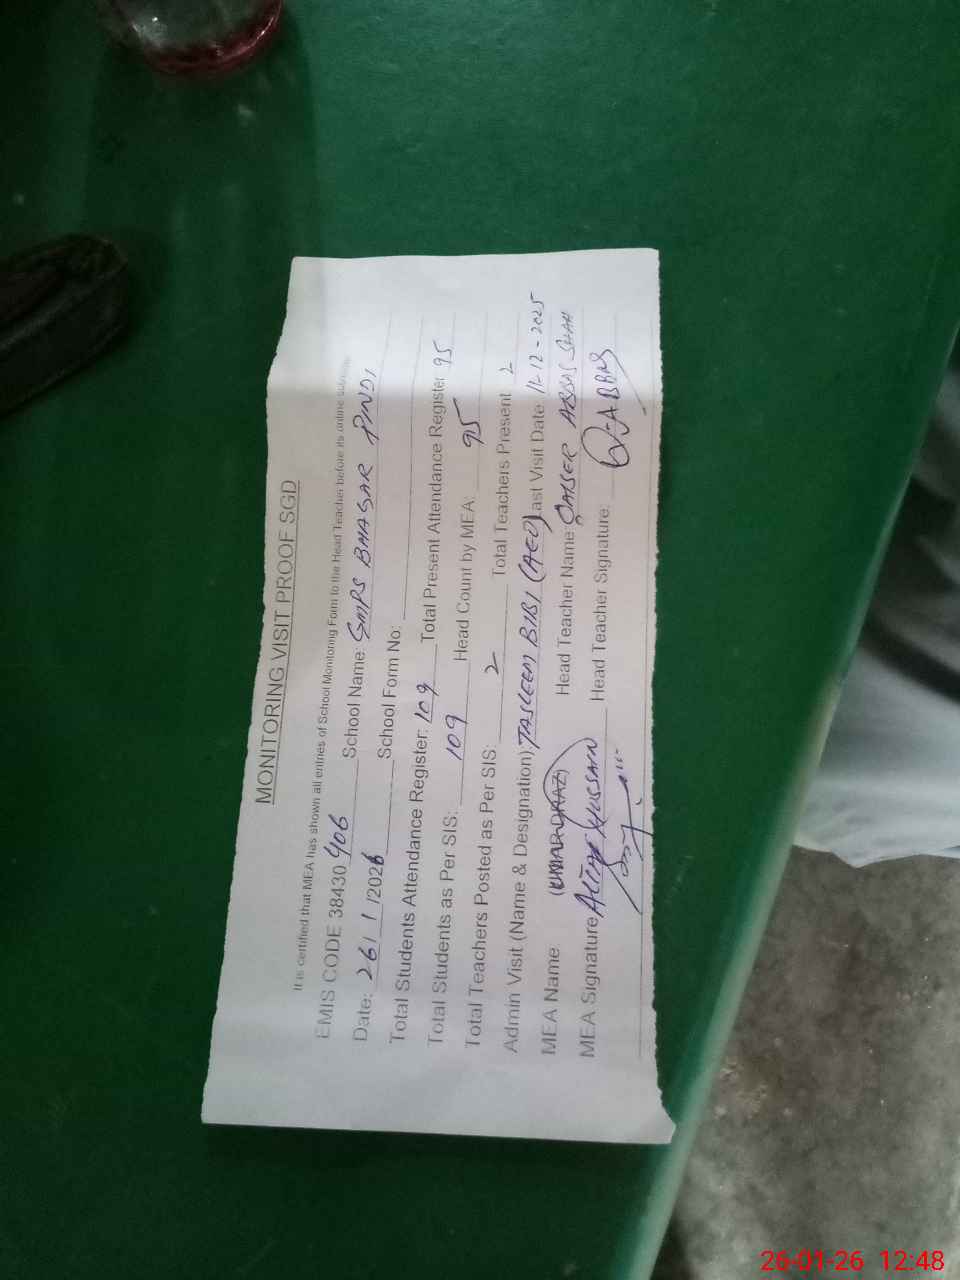 MONITORING VISIT PROOF SGD
It is certified that MEA has shown all entries of School Monitoring Form to the Head Teacher before its online
EMIS CODE 38430 406 School Name: GMPS BHAGAR PINDI
Date: 26/1/2026 School Form No:
Total Students Attendance Register: 109 Total Present Attendance Register 95
Total Students as Per SIS: 109 Head Count by MEA: 95
Total Teachers Posted as Per SIS: 2 Total Teachers Present 2
Admin Visit (Name & Designation); TASLEEM BIBI (AEO) Last Visit Date: 11-12-2025
MEA Name (UMAR DRAZ) Head Teacher Name: QAISER ABBAS SHAH
MEA Signature HUSSAIN Head Teacher Signature: Q-ABBAS
26-01-26 12:48